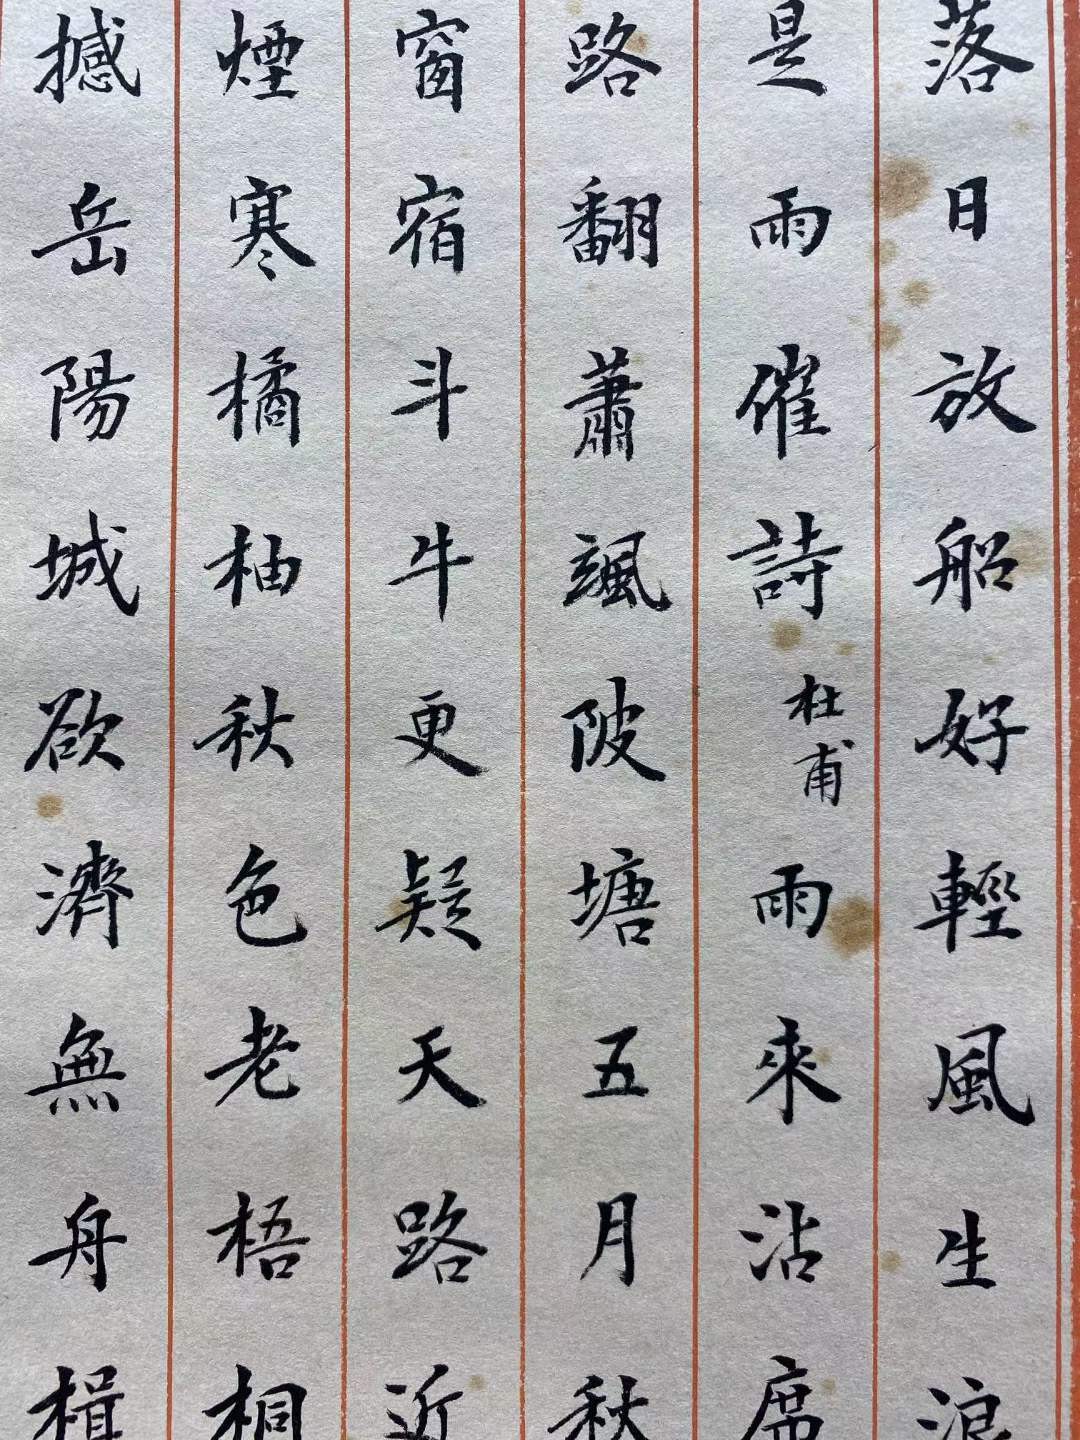 落日放船好輕風生浪
是雨催詩杜甫雨來沾席
路翻蕭颯陂塘五月秋
窗宿斗牛更疑天路近
煙寒橘柚秋色老梧桐
撼岳陽城欲濟無舟楫